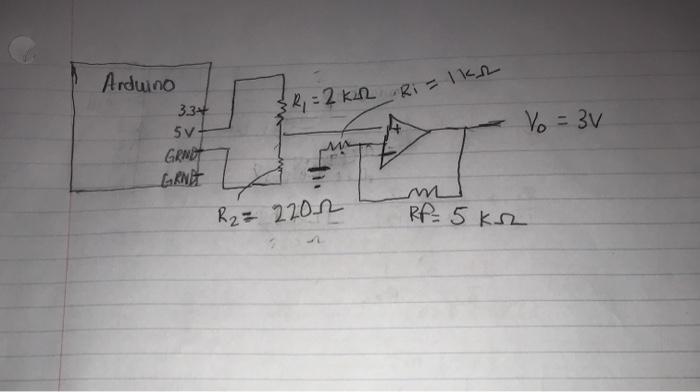 Arduino
3.3V
5V
GRND
GRND
R1 = 2 KΩ
Ri = 1KΩ
Vo = 3V
R2 = 220Ω
RF = 5 KΩ
+
-